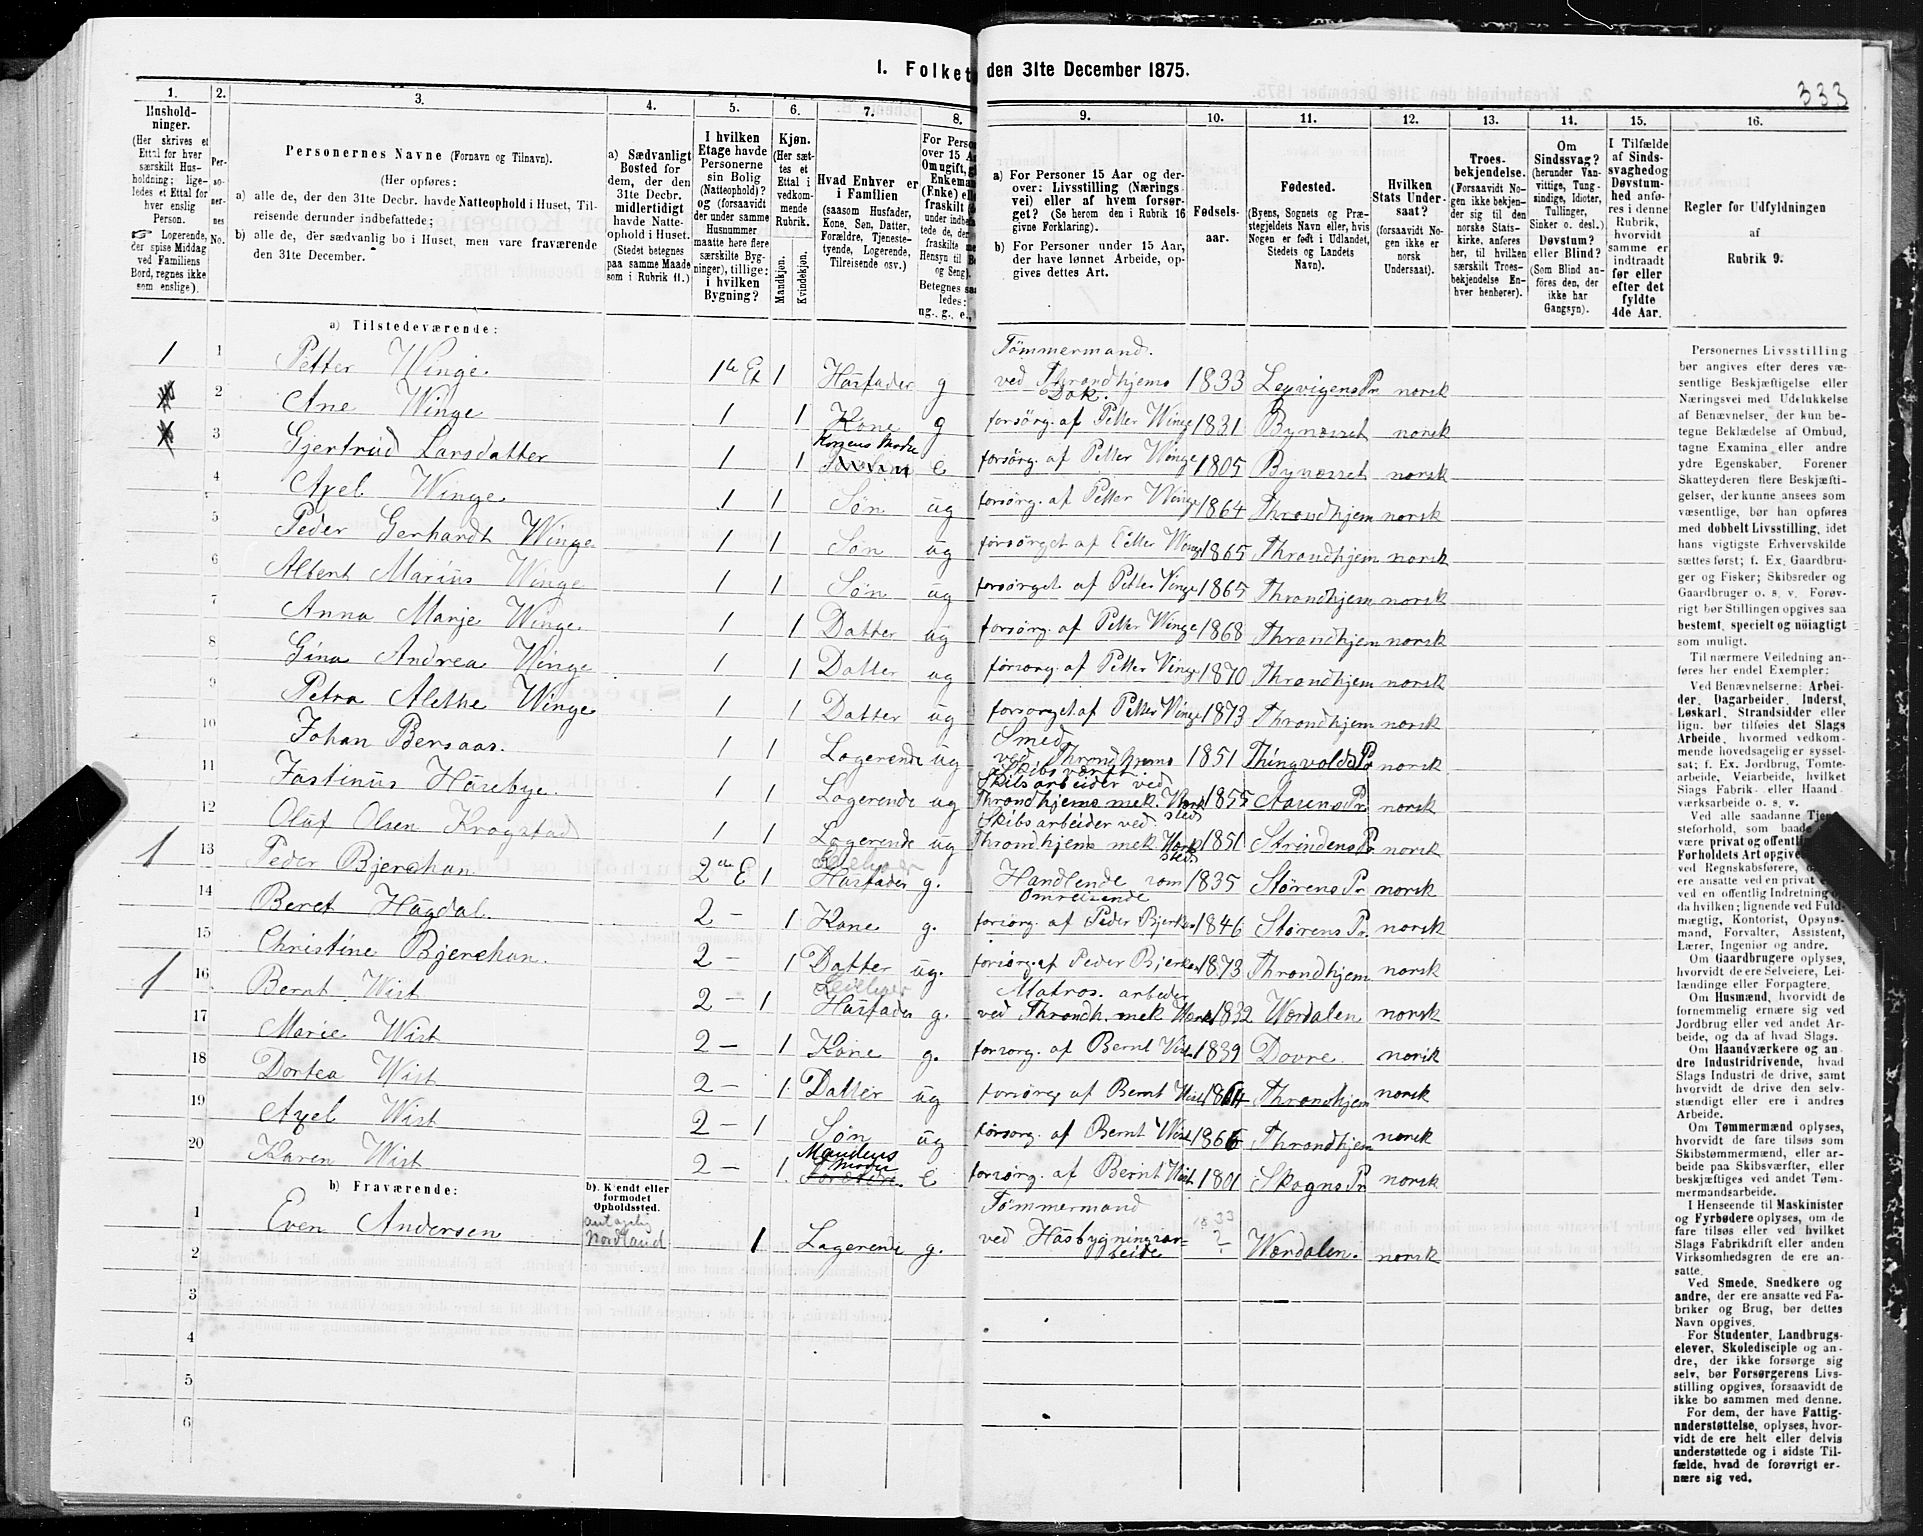 I. Folket den 31te December 1875.
333
1. 2. 3. 4. 5. 6. 7. 8. 9. 10. 11. 12. 13. 14. 15. 16.
Hushold-
ninger.
(Her skrives et
Ettal for hver
særskilt Hus-
holdning; lige-
ledes et Ettal for
hver enslig
Person.
☞ Logerende,
der spise Middag
ved Familiens
Bord, regnes ikke
som enslige).
Per-
so-
ner-
nes
No.
Personernes Navne (Fornavn og Tilnavn).
(Her opføres:
a) alle de, der den 31te Decbr. havde Natteophold i Huset, Til-
reisende derunder indbefattede;
b) alle de, der sædvanlig bo i Huset, men vare fraværende
den 31te December.
a) Sædvanligt
Bosted for
dem, der den
31te Decbr.
midlertidigt
havde Natte-
ophold i Huset.
(Stedet betegnes
paa samme Maade
som i Rubrik 11.)
I hvilken
Etage havde
Personerne
sin Bolig
(Natteophold)?
og (forsaavidt
der under samme
Husnummer
maatte høre flere
særskilte Byg-
ninger), tillige:
i hvilken
Bygning?
Kjøn.
(Her sæt-
tes et
Ettal i
vedkom-
mende
Rubrik.
Mandkjøn.
Kvindekjøn.
Hvad Enhver er
i Familien
(saasom Husfader,
Kone, Søn, Datter,
Forældre, Tjeneste-
tyende, Logerende,
Tilreisende osv.)
For Perso
over 15 Aa
Omugift, g
Enkema
(Enke) elle
fraskilt (
under indbe
tede de, de
fraskilte m
Hensyn til Bo
og Seng).
Betegnes saa
ledes:
ug., g., e.,
a) For Personer 15 Aar og der-
over: Livsstilling (Nærings
vei) eller af hvem forsør-
get? (Se herom den i Rubrik 16
givne Forklaring).
b) For Personer under 15 Aar,
der have lønnet Arbeide, op-
gives dettes Art.
Fødsels-
aar.
Fødested.
(Byens, Sognets og Præ-
stegjeldets Navn eller, hvis
Nogen er født i Udlandet,
Stedets og Landets
Navn).
Hvilken
Stats Under-
saat?
(forsaavidt No-
gen ikke er
norsk
Undersaat).
Troes-
bekjendelse.
(Forsaavidt No-
gen ikke bekjen-
der sig til den
norske Stats-
kirke, anføres
her, til hvilken
særskilt Troes-
bekjendelse En-
hver henhører).
Om
Sindssvag?
(herunder Van-
vittige, Tung-
sindige, Idioter,
Tullinger,
Sinker o. desl.)
Døvstum?
eller Blind?
(Som Blind an-
føres den, der
ikke har
Gangsyn).
I Tilfælde
af Sinds-
svaghed og
Døvstum-
hed anfø-
res i denne
Rubrik,
hvorvidt
samme er
indtraadt
før eller
efter det
fyldte
4de Aar.
Regler for Udfyldningen
af
Rubrik 9.
a) Tilstedeværende:
1 1 Petter Winge. 1te Et 1 Husfader g Tømmermand. ved Throndhjems Dok. 1833 Lexvigens Pr norsk
2 Ane Winge 1 1 Kone g forsørg. af Petter Winge 1831 Bynæsset norsk
3 Gjertrud Larsdatter 1 1 Konens Moder e forsørg. af Petter Winge 1805 Bynæsset norsk
4 Axel Winge 1 1 Søn ug forsørg. af Petter Winge 1864 Throndhjem norsk
5 Peder Gerhardt Winge 1 1 Søn ug forsørget af Petter Winge 1865 Throndhjem norsk
6 Albert Marius Winge 1 1 Søn ug forsørget af Petter Winge 1865 Throndhjem norsk
7 Anna Marje Winge. 1 1 Datter ug forsørg. af Petter Winge 1868 Throndhjem norsk
8 Gina Andrea Winge 1 1 Datter ug forsørg. af Petter Winge 1870 Throndhjem norsk
9 Petra Alethe Winge 1 1 Datter ug forsørget af Petter Winge 1873 Throndhjem norsk
10 Johan Bersaas. 1 1 Logerende ug Smed ved Throndhjems Skibsværft. 1851 Thingvolds Pr norsk
11 Justinus Hurebye. 1 1 Logerende ug Skibsarbeider ved Throndhjems mek. Værksted 1855 Aasens Pr norsk
12 Oluf Olsen Krogstad 1 1 Logerende ug Skibsarbeider ved Throndhjems mek Værksted 1851 Strindens Pr norsk
1 13 Peder Bjerchan. 2den E 1 Leieboer Husfader g. Handlende som Omreisende 1835 Størens Pr norsk
14 Beret Hugdal. 2 — 1 Kone g. forsørg. af Peder Bjerkan 1846 Størens Pr. norsk
15 Christine Bjerchan. 2 — 1 Datter ug. forsørg. af Peder Bjerkan 1873 Throndhjem norsk
1 16 Bernt Wist 2 — 1 Leieboer Husfader g. Matros. arbeder ved Throndh. mek Værks 1832 Værdalen norsk
17 Marie Wist 2 — 1 Kone g. forsørg. af Bernt Wist 1839 Dovre. norsk
18 Dortea Wist 2 — 1 Datter ug forsørg af Bernt Wist 1864 Throndhjem norsk
19 Axel Wist 2 — 1 Søn ug forsørg. af Bernt Wist 1866 Throndhjem norsk
20 Karen Wist 2 — 1 Mandens moder Forældre. e forsørg. af Bernt Wist 1801 Skogns Pr norsk
b) Fraværende:
b). Kjendt eller
formodet
Opholdssted.
1 Even Andersen antagelig Nordland 1 Logerende g. Tømmermand ved Husbygningsarbeide 1833 ? Værdalen. norsk
2
3
4
5
6
Personernes Livsstilling
bør angives efter deres væ-
sentlige Beskjæftigelse eller
Næringsvei med Udelukkelse
af Benævnelser, der kun be-
tegne Beklædelse af Ombud,
tagne Examina eller andre
ydre Egenskaber. Forener
Skatteyderen flere Beskjæfti-
gelser, der kunne ansees som
væsentlige, bør han opføres
med dobbelt Livsstilling, idet
hans vigtigste Erhvervskilde
sættes først; f. Ex. Gaardbru-
ger og Fisker; Skibsreder og
Gaardbruger o. s. v. Forøv-
rigt bør Stillingen opgives saa
bestemt, specielt og nöiagtigt
som muligt.
Til nærmere Veiledning an-
føres her endel Exempler:
Ved Benævnelserne: Arbei-
der, Dagarbeider, Inderst,
Løskarl, Strandsidder eller
lign. bør tilføies det Slags
Arbeide, hvormed vedkom-
mende hovedsagelig er syssel-
sat; f. Ex. Jordbrug, Tomte-
arbeide, Veiarbeide, hvilket
Slags Fabrik- eller Haand-
værksarbeide o. s. v.
Ved alle saadanne Tjene-
steforhold, som baade
være privat og offentli
Forholdets Art opgive
ved Regnskabsførere,
ere ansatte ved en privat e
ved en offentlig Indretning o
da hvilken; lignende ved Fuld-
mægtig, Kontorist, Opsyns-
mand, Forvalter, Assistent,
Lærer, Ingeniør og andre.
Om Gaardbrugere oplyses,
hvorvidt de ere Selveiere, Lei-
lændinge eller Forpagtere.
Om Husmænd, hvorvidt de
fornemmelig ernære sig ved
Jordbrug eller ved andet Ar-
beide, og da af hvad Slags.
Om Haandværkere og an-
dre Industridrivende, hvad
Slags Industri de drive, samt
hvorvidt de drive den selv-
stændigt eller ere i andres
Arbeide.
Om Tømmermænd oplyses,
hvorvidt de fare tilsøs som
Skibstømmermænd, eller ar-
beide paa Skibsværfter, eller
beskjæftiges ved andet Tøm-
mermandsarbeide.
I Henseende til Maskinister
og Fyrbødere oplyses, om de
fare tilsøs eller ved hvad
Slags Fabrikdrift eller anden
Virksomhedsgren de ere an-
satte.
Ved Smede, Snedkere og
andre, der ere ansatte ved Fa-
briker og Brug, bør dettes
Navn opgives.
For Studenter, Landbrugs-
elever, Skoledisciple og an-
dre, der ikke forsørge sig
selv, bør Forsørgerens Livs-
stilling opgives, forsaavidt de
ikke bo sammen med denne.
For dem, der have Fattig-
understøttelse, oplyses, hvor-
vidt de ere helt eller delvis
understøttede og i sidste Til-
fælde, hvad de forøvrigt er-
nære sig ved.